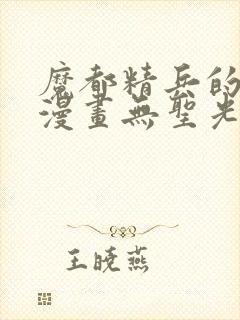 魔都精兵的
漫畫無聖光
王曉燕